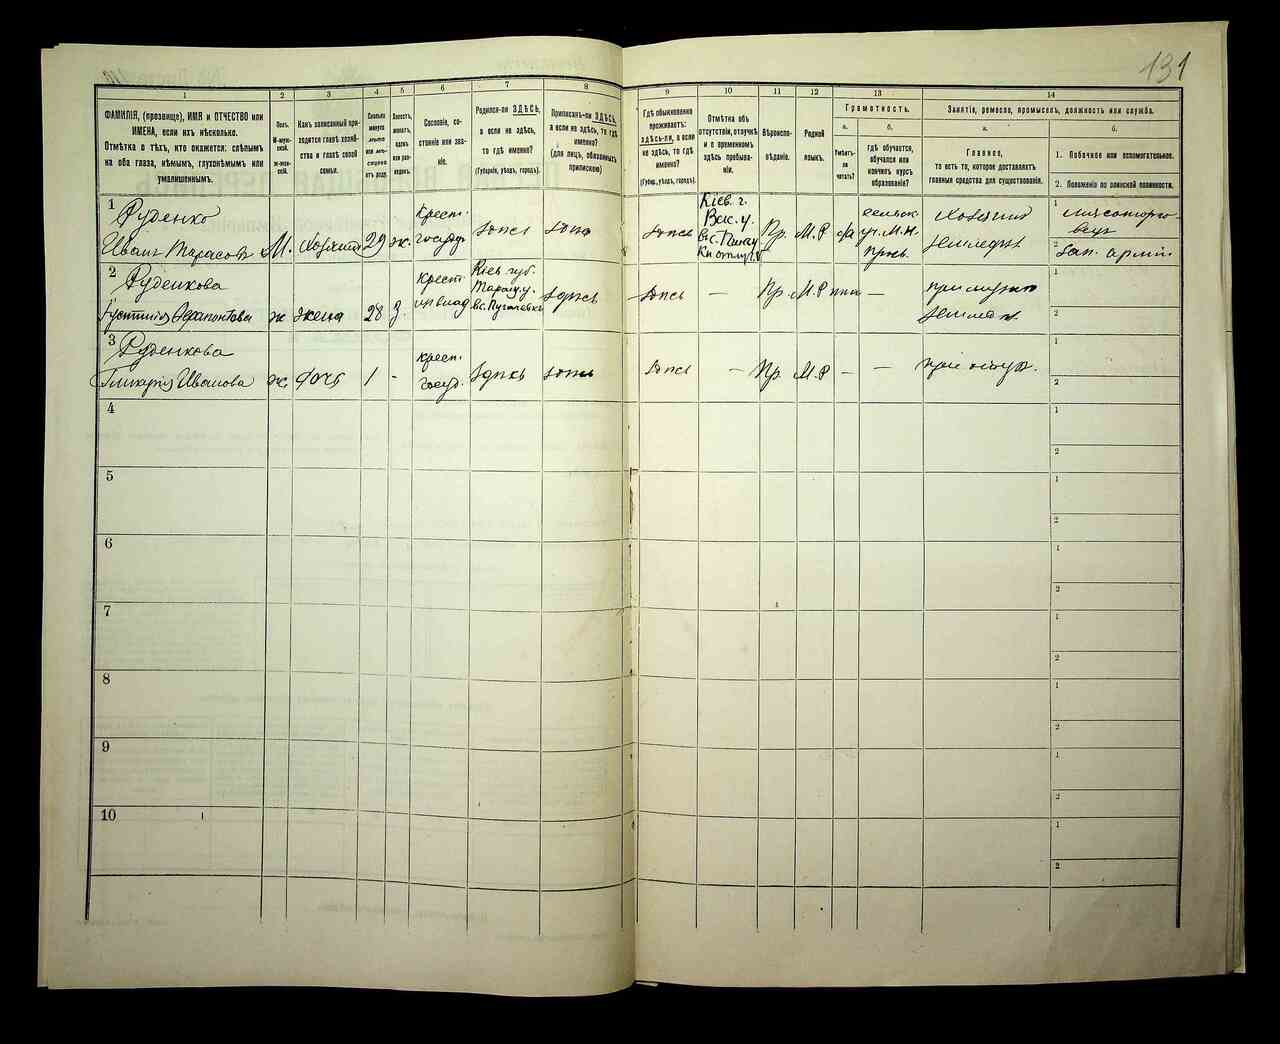 131
1 2 3 4 5 6 7 8 9 10 11 12 13 14
ФАМИЛІЯ, (прозвище), ИМЯ и ОТЧЕСТВО или
ИМЕНА, если ихъ нѣсколько.
Отмѣтка о тѣхъ, кто окажется: слѣпымъ
на оба глаза, нѣмымъ, глухонѣмымъ или
умалишеннымъ.
Полъ.
М-муж-
ской.
ж-жен-
скій.
Какъ записанный при-
ходится главѣ хозяй-
ства и главѣ своей
семьи.
Сколько
минуло
лѣтъ
или мѣ-
сяцевъ
отъ роду.
Холостъ,
женатъ,
вдовъ
или раз-
веденъ.
Сословіе, со-
стояніе или зва-
ніе.
Родился-ли ЗДѢСЬ,
а если не здѣсь,
то гдѣ именно?
(Губернія, уѣздъ, городъ).
Приписанъ-ли ЗДѢСЬ,
а если не здѣсь, то гдѣ
именно?
(для лицъ, обязанныхъ
припискою)
Гдѣ обыкновенно
проживаетъ:
здѣсь-ли, а если
не здѣсь, то гдѣ
именно?
(Губер., уѣздъ, городъ).
Отмѣтка объ
отсутствіи, отлучкѣ
и о временномъ
здѣсь пребыва-
ніи.
Вѣроиспо-
вѣданіе.
Родной
языкъ.
Грамотность.
а.
Умѣетъ-
ли
читать?
б.
гдѣ обучается,
обучался или
кончилъ курсъ
образованія?
Занятія, ремесло, промыселъ, должность или служба.
а.
Главное,
то есть то, которое доставляетъ
главныя средства для существованія.
б.
1. Побочное или вспомогательное.
2. Положеніе по воинской повинности.
1
Руденко
Иванъ Тарасовъ М. хозяинъ 29 ж.
Крест.
государ
здѣсь здѣсь здѣсь
Кіев. г.
Вас. у.
Пр. М.Р
земледѣл.
Зап. арміи
2
Руденкова
ж жена 28 З.
Крест.
Кіев губ.
Таращ. у.
здѣсь здѣсь — Пр М.Р —
3
Руденкова
Гликерія Иванова ж. дочь 1 -
крест.
госуд.
здѣсь здѣсь здѣсь — Пр М.Р — —
при отцѣ.
4
5
6
7
8
9
10
1
2
1
2
1
2
1
2
1
2
1
2
1
2
1
2
1
2
1
2